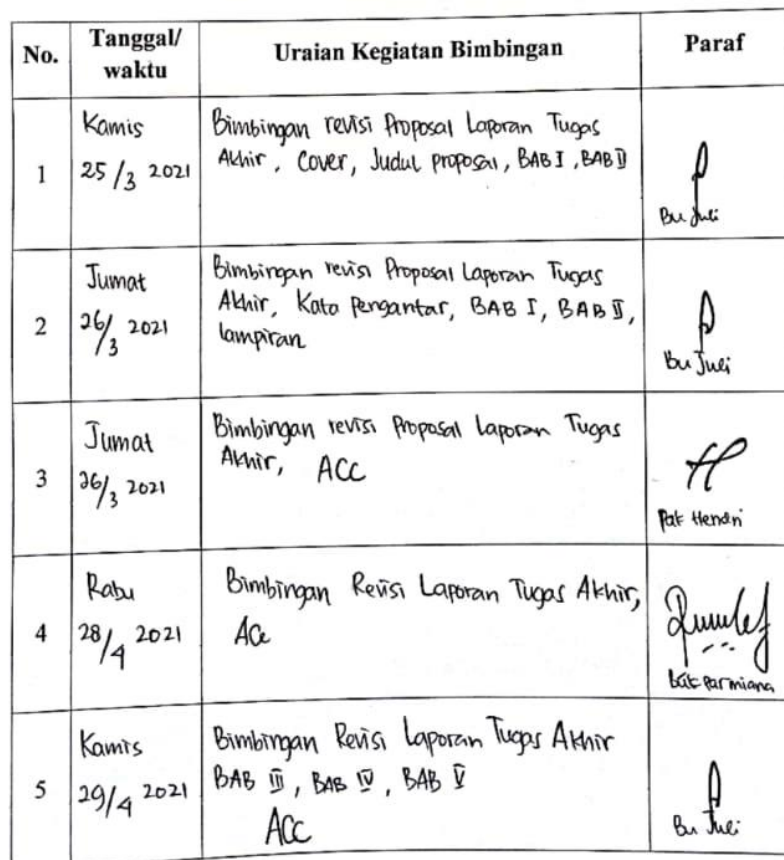 No.
Tanggal/
waktu
Uraian Kegiatan Bimbingan
Paraf
1
Kamis
25/3 2021
Bimbingan revisi Proposal Laporan Tugas
Akhir, Cover, Judul proposal, BAB I, BAB II
Bu Juli
2
Jumat
26/3 2021
Bimbingan revisi Proposal Laporan Tugas
Akhir, Kata Pengantar, BAB I, BAB II,
lampiran
Bu Juli
3
Jumat
26/3 2021
Bimbingan revisi Proposal Laporan Tugas
Akhir, ACC
Pak Hendri
4
Rabu
28/4 2021
Bimbingan Revisi Laporan Tugas Akhir,
Acc
Pak Parmiana
5
Kamis
29/4 2021
Bimbingan Revisi Laporan Tugas Akhir
BAB III, BAB IV, BAB V
ACC
Bu Juli